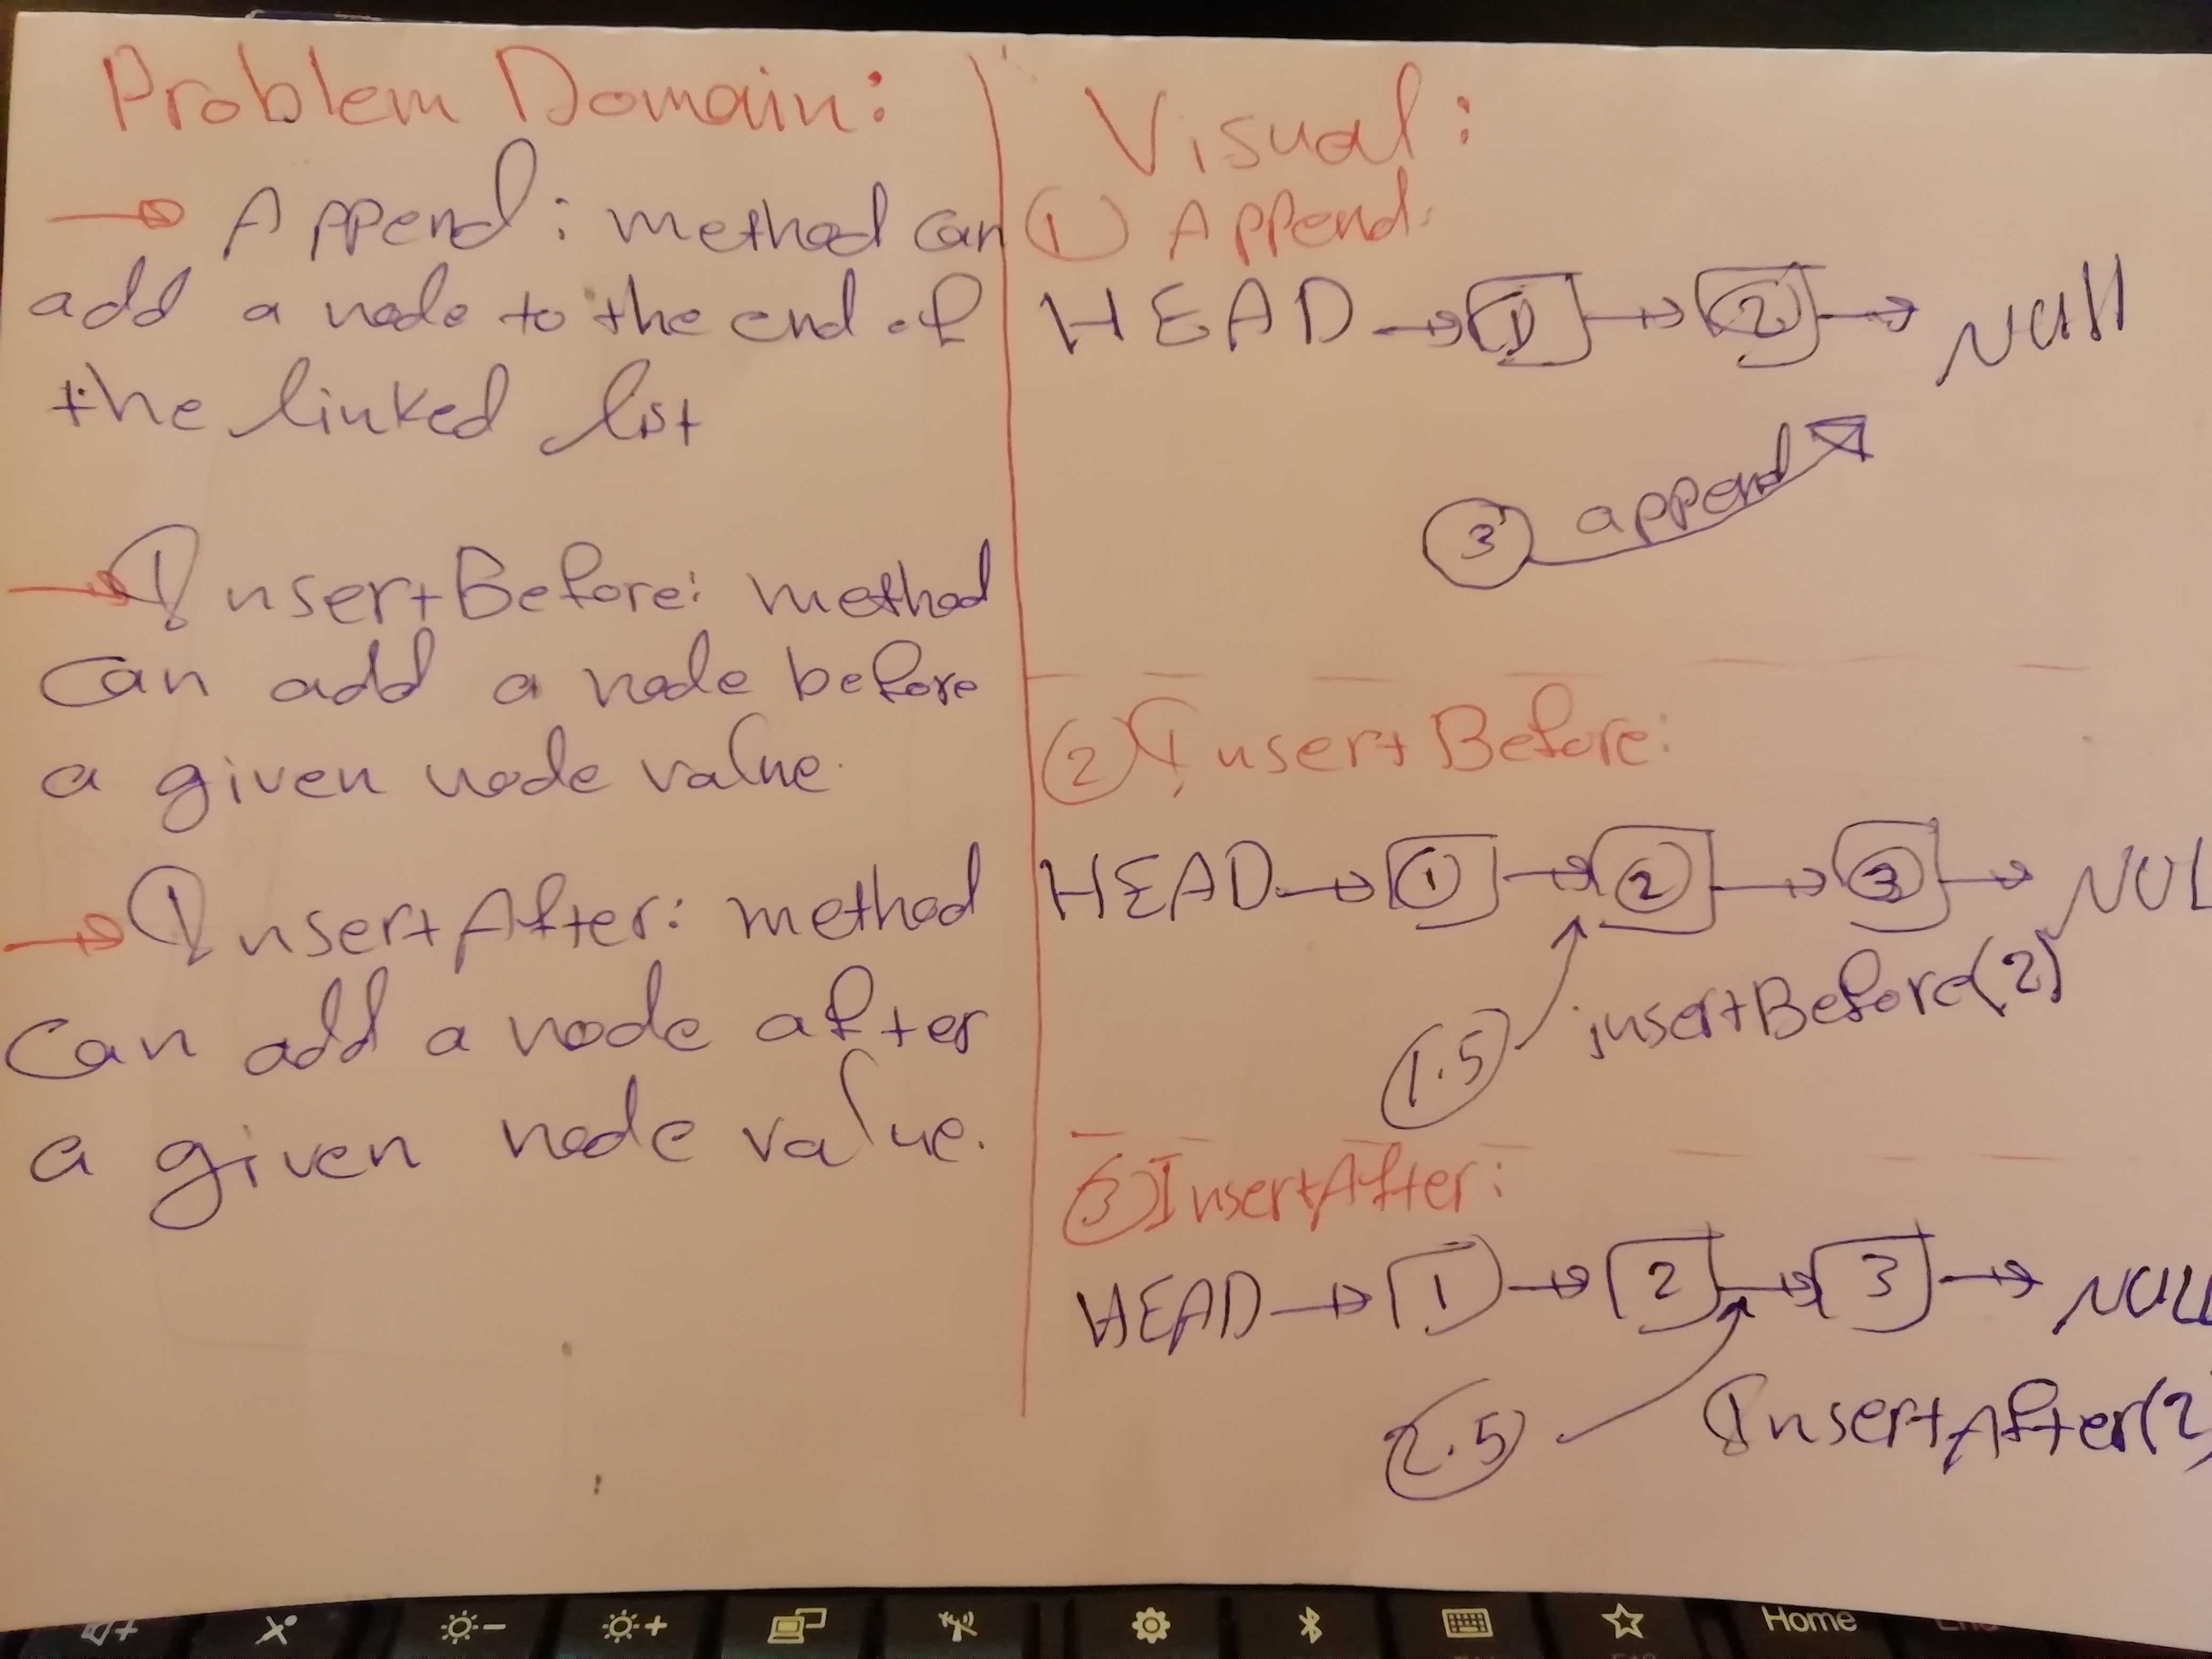 Problem Domain:
→ Append: method can
add a node to the end of
the linked list
→ InsertBefore: method
can add a node before
a given node value.
→ InsertAfter: method
can add a node after
a given node value.
Visual:
① Append:
HEAD → 1 → 2 → NUll
3 append
② InsertBefore:
HEAD → 1 → 2 → 3 → NUL
1.5 insertBefore(2)
③ InsertAfter:
HEAD → 1 → 2 → 3 → NULL
2.5 InsertAfter(2)
Home